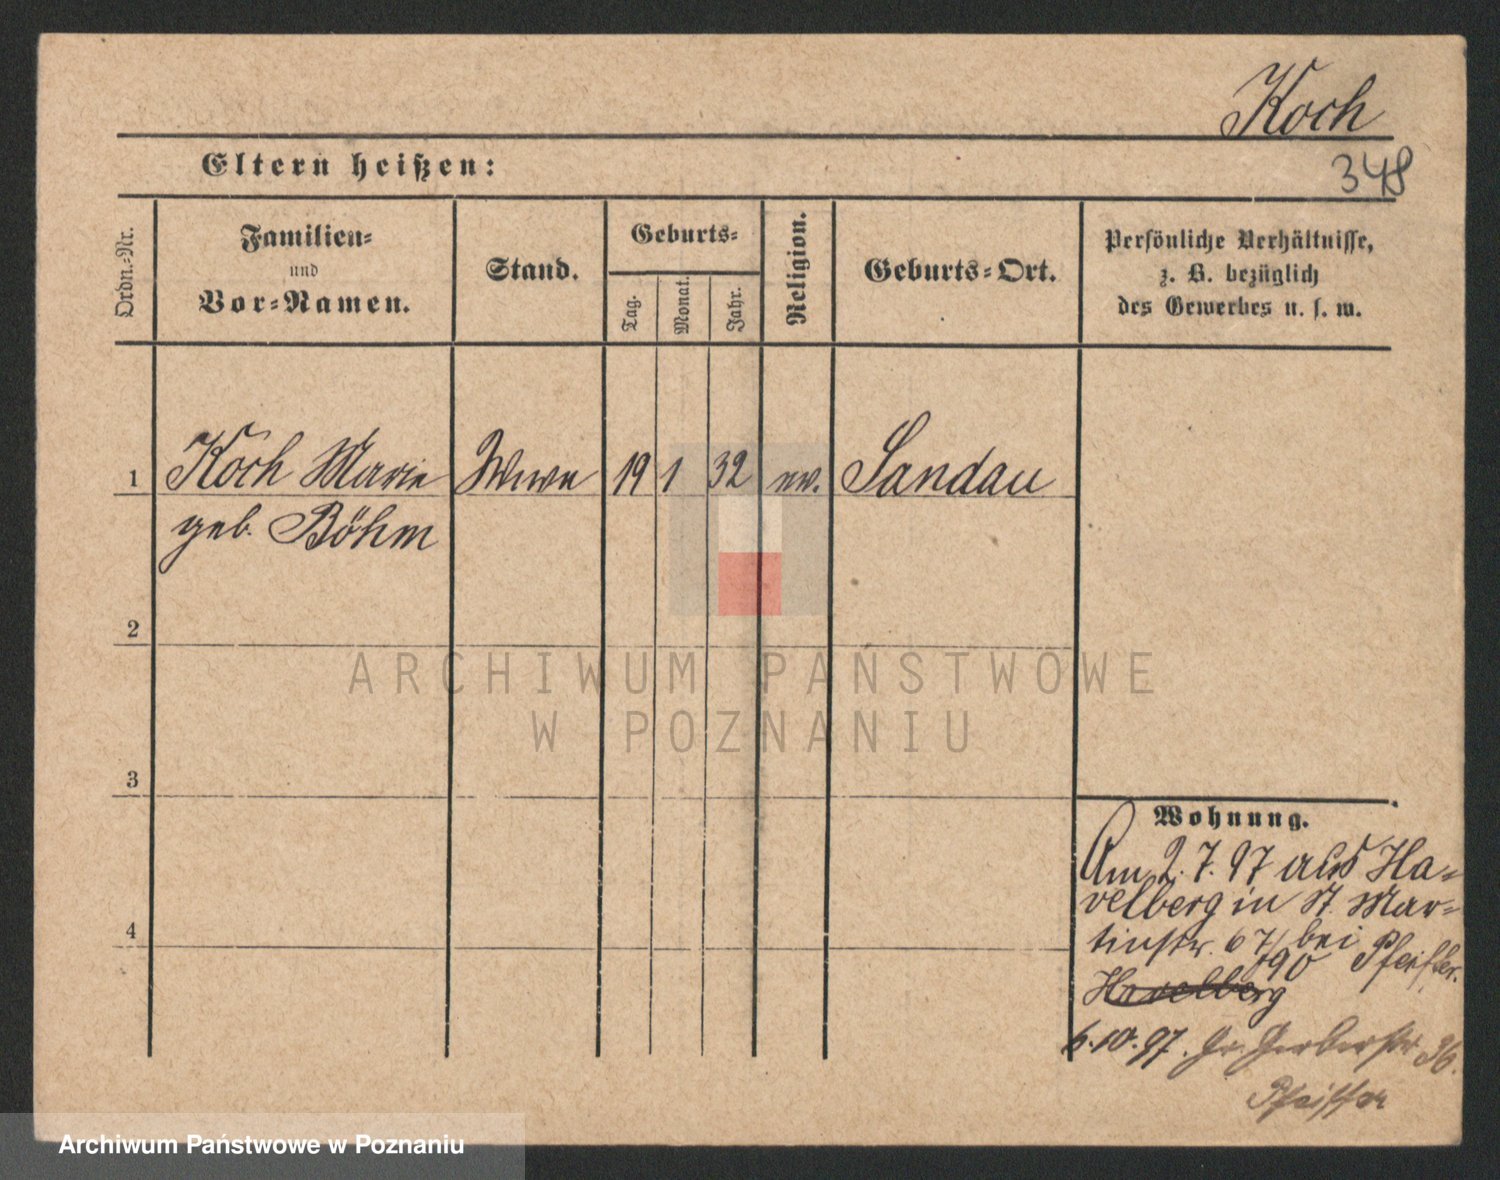 Koch
348
Eltern heißen:
Ordn.-Nr.
Familien-
und
Vor-Namen.
Stand.
Geburts-
Tag.
Monat.
Jahr.
Religion.
Geburts-Ort.
Persönliche Verhältnisse,
z. B. bezüglich
des Gewerbes u. s. w.
1 Koch Marie Wwe 19 1 32 ev. Sandau
geb. Böhm
2
ARCHIWUM PAŃSTWOWE
W POZNANIU
3
Wohnung.
Am 2.7.97 aus Ha-
velberg in St. Mar-
tinstr. 67/ bei
190 Pfeiffer.
Havelberg
4
6.10.97. Gr. Gerberstr 36.
Pfeiffer
Archiwum Państwowe w Poznaniu